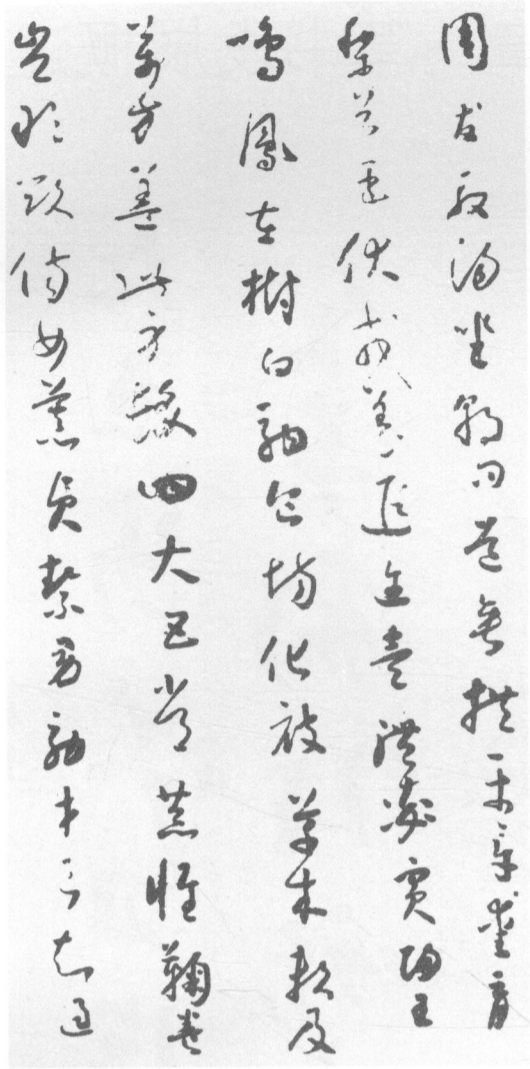 周發殷湯坐朝問道垂拱平章愛育
黎首臣伏戎羌遐邇壹體率賓歸王
鳴鳳在樹白駒食場化被草木賴及
萬方蓋此身髮四大五常恭惟鞠養
豈敢毀傷女慕貞絜男效才良知過